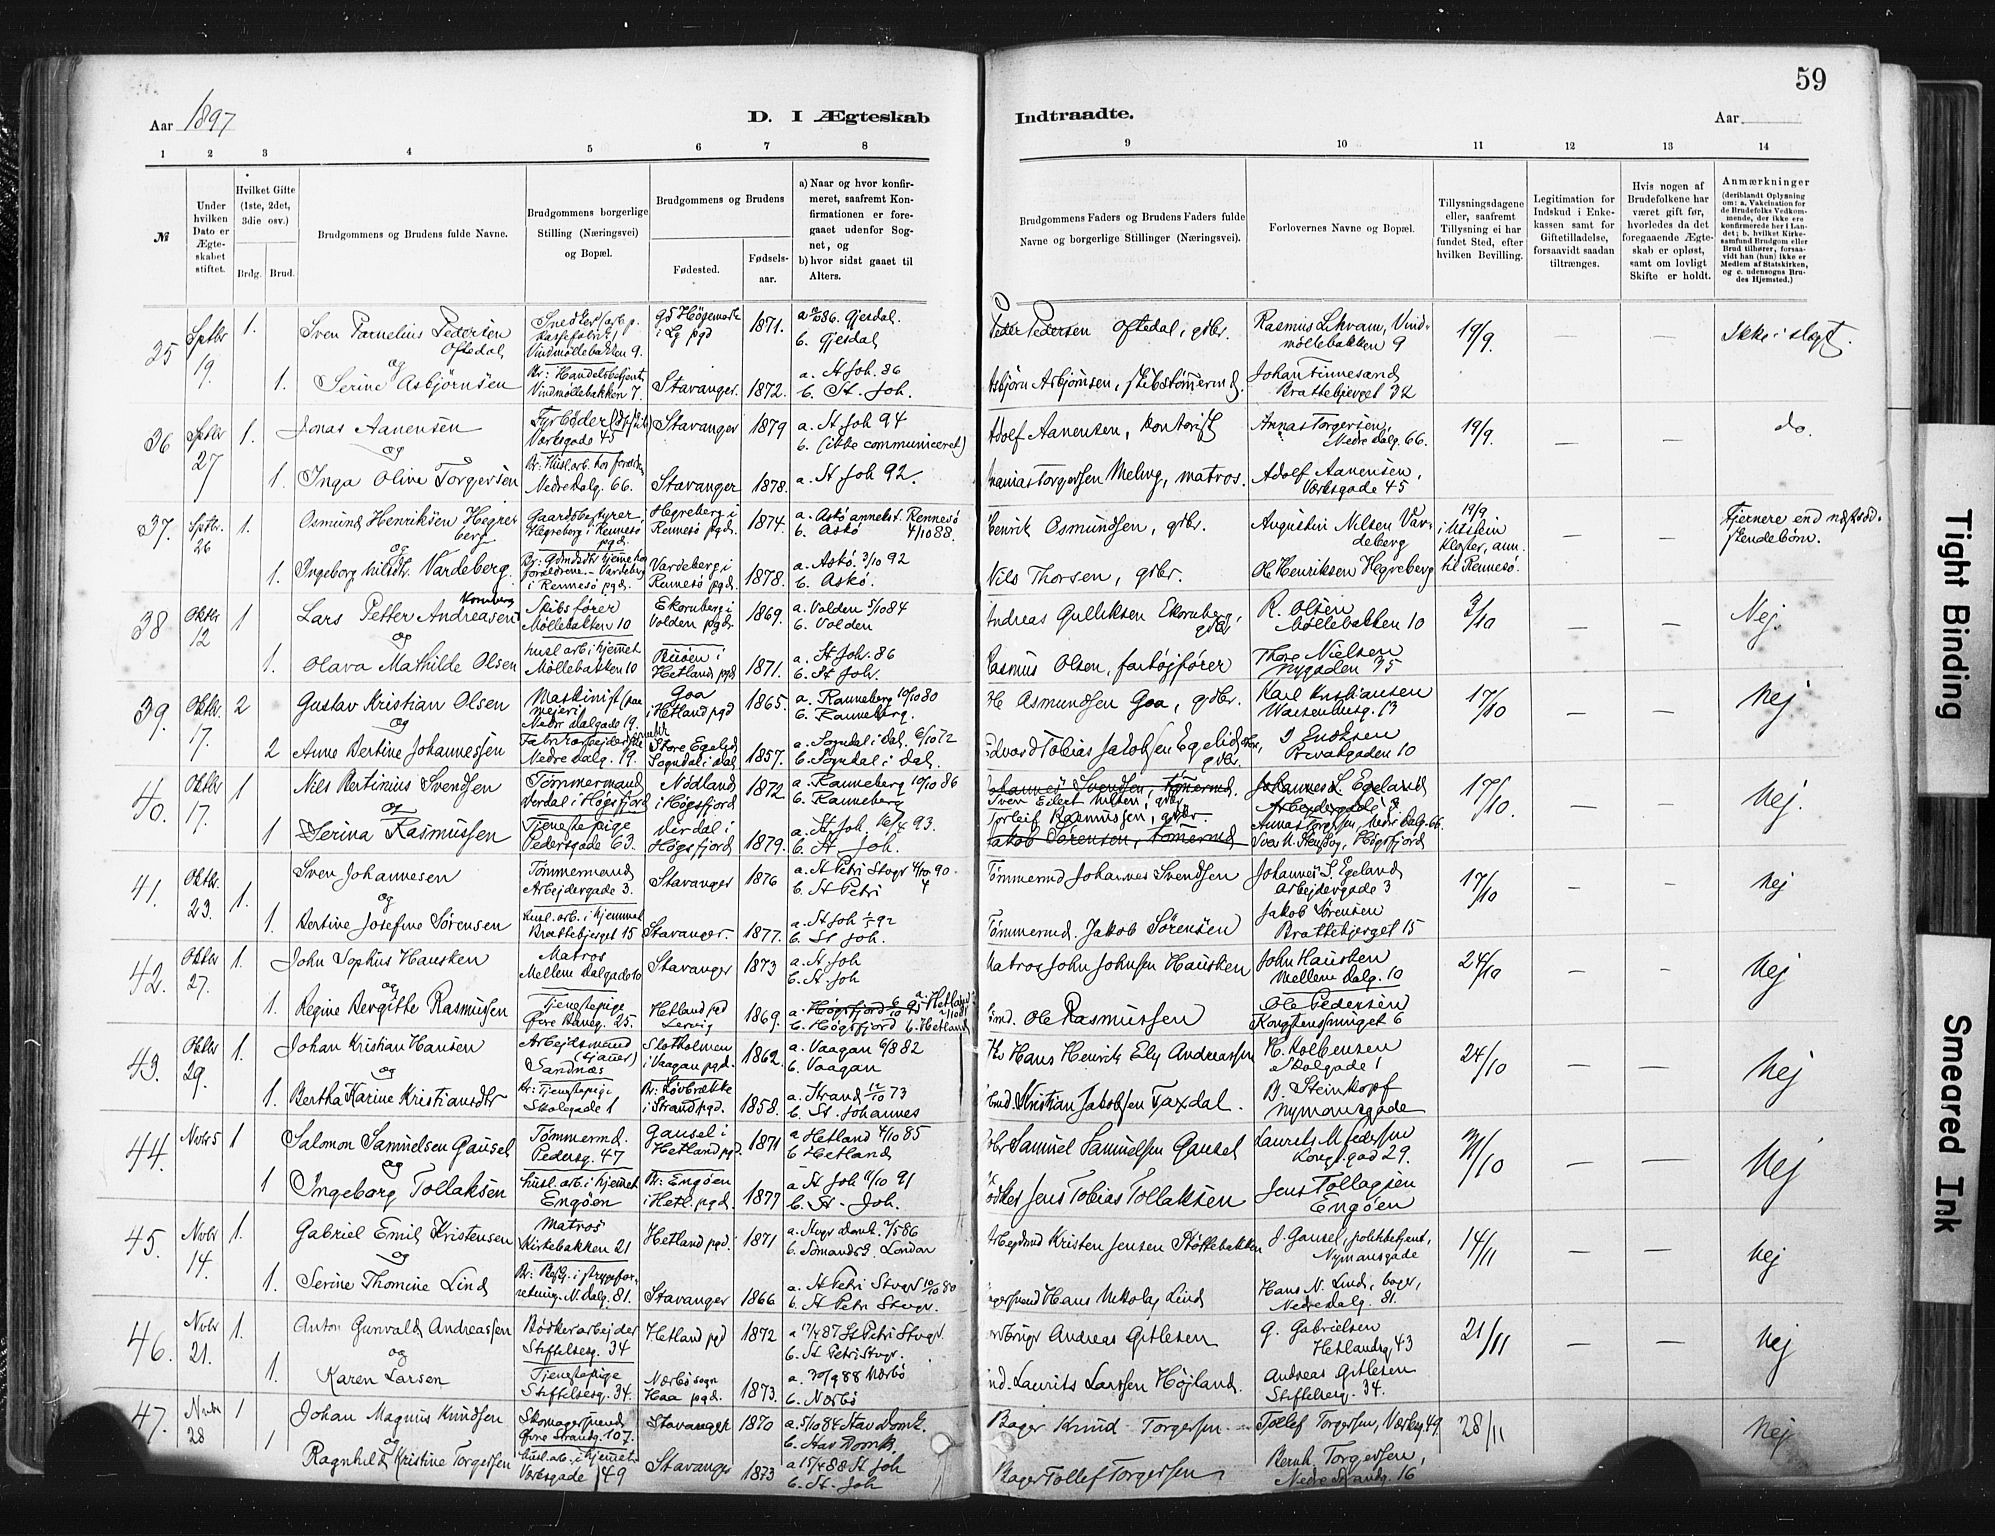 59
Aar 1897
D. I Ægteskab
Indtraadte.
Aar
1 2 3 4 5 6 7 8 9 10 11 12 13 14
№
Under hvilken Dato er Ægteskabet stiftet.
Hvilket Gifte (1ste, 2det, 3die osv.)
Brdg. Brud.
Brudgommens og Brudens fulde Navne.
Brudgommens borgerlige Stilling (Næringsvei) og Bopæl.
Brudgommens og Brudens
Fødested.
Fødselsaar.
a) Naar og hvor konfirmeret, saafremt Konfirmationen er foregaaet udenfor Sognet, og
b) hvor sidst gaaet til Alters.
Brudgommens Faders og Brudens Faders fulde Navne og borgerlige Stillinger (Næringsvei).
Forlovernes Navne og Bopæl.
Tillysningsdagene eller, saafremt Tillysning ei har fundet Sted, efter hvilken Bevilling.
Legitimation for Indskud i Enkekassen samt for Giftetilladelse, forsaavidt saadan tiltrænges.
Hvis nogen af Brudefolkene har været gift før, hvorledes da det foregaaende Ægteskab er opløst, samt om lovligt Skifte er holdt.
Anmærkninger (deriblandt Oplysning om: a. Vakcination for de Brudefolks Vedkommende, der ikke ere konfirmerede her i Landet; b. hvilket Kirkesamfund Brudgom eller Brud tilhører, forsaavidt han (hun) ikke er Medlem af Statskirken, og c. udensogns Brudes Hjemsted.)
25 Sptbr 19. 1. Sven Pedersen Oftedal Vindmøllebakken 9. 1871. Gjesdal. b. Gjesdal Peder Pedersen Oftedal, gdbr. Rasmus Lekvam, Vindmøllebakken 9 19/9. — — Ikke i slægt.
og
1. Serine Asbjørnsen Vindmøllebakken 7. Stavanger. 1872. a. St Joh. 86 b. St. Joh. Asbjørn Asbjørnsen, Johan Finnesand Brattebjerget 32
36 Sptbr 27 1. Jonas Aanensen Værksgade 45 Stavanger 1879 a. St Joh 94 b. (ikke communiceret) Adolf Aanensen, Kontorist Torgersen, Nedre dalg. 66. 19/9. — — do.
og
1. Inga Olive Torgersen Nedre dalg. 66. Stavanger 1878. a. St Joh 92. Torgersen Meling, matros. Adolf Aanensen, Værksgade 45
37. Sptbr. 26 1. Osmund Henriksen Hegreberg Gaardsbestyrer Hegreberg i Rennesø pgd. Hegreberg i Rennesø pgd. 1874. a. Askø annekst. Rennesø 4/10 88. b. Askø Henrik Osmundsen, gdbr. Augustin Nilsen Vardeberg 19/9 i Utstein Kloster, ann. til Rennesø. Fjernere end næstsødskendebørn.
og
1. Ingeborg Nilsdtr. Vardeberg. Vardeberg i Rennesø pgd. 1878. a. Askø. 3/10 92 b. Askø. Nils Thorsen, gdbr. Ole Henriksen Hegreberg
38 Oktbr 12 1 Lars Petter Andreasen Skibsfører Møllebakken 10 Ekornberg i Volden pgd. 1869. a. Volden 5/10 84 b. Volden Andreas Gulliksen Ekornberg, gdbr. R. Olsen Møllebakken 10 3/10 — — Nej.
og
1. Olava Mathilde Olsen husl. arb. i hjemmet Møllebakken 10 Buøen i Hetland pgd 1871. a. St Joh. 86 b. St Joh. Rasmus Olsen, fartøjfører Thore Nielsen Nygaden 35
39. Oktbr. 17. 2 Gustav Kristian Olsen Maskinist paa mejeri Nedre dalgade 19. Goa i Hetland pgd 1865. a. Ranneberg 10/10 80 b. Ranneberg. Asmundsen Goa, gdbr. Karl Kristiansen Waisenhusg. 13 17/10 — — Nej
og
2 Anne Bertine Johannessen Nedre Dalg. 19. Store Egelid Sogndal i dal 1857. a. Sogndal i dal. 6/10 72 b. Sogndal i dal. Edvard Tobias Jakobsen Egelid gdbr. I Endresen Privatgaden 10
40. Oktbr 17. 1 Nils Bertinius Svendsen Tømmermand Dirdal i Høgsfjord Nødland i Høgsfjord 1872 a. Ranneberg 10/10 86 b. Ranneberg Johannes Svendsen, tømermd. Johannes S. Egeland Arbejdergade 3 17/10. — — Nej.
og
1 Serina Rasmussen Tjenestepige Pedersgade 63. Dirdal i Høgsfjord 1879. a. St. Joh. 16/4 93. b. St Joh. Torleif Rasmussen, gdbr. Jakob Sørensen, tømermd.
41. Oktbr. 23. 1. Sven Johannesen Tømmermand Arbejdergade 3. Stavanger 1876 a. St Petri Stvgr 4/10 90 b. St Petri Tømmermd Johannes Svendsen Johannes S. Egeland Arbejdergade 3 17/10 — — Nej
og
1. Bertine Josefine Sørensen husl. arb. i hjemmet Brattebjerget 15 Stavanger. 1877. a. St Joh 92 b. St Joh. Tømmermd. Jakob Sørensen Jakob Sørensen Brattebjerget 15
42. Oktbr 27. 1. John Sophus Hausken Matros Mellem dalgade 10 Stavanger 1873 a. St. Joh b. St. Joh Matros John Johnsen Hausken John Hausken Mellem dalg. 10 24/10 — — Nej
og
1. Regine Bergitte Rasmussen Tjenestepige Øvre Baneg. 25. Hetland pgd 1869. b. Høgsfjord b. Hetland Ole Rasmussen Ole Pedersen Kongstenssmuget 6
43. Oktbr 29. 1. Johan Kristian Hansen Arbejdsmand Sandnæs Slotholmen i Vaagan pgd. 1862. a. Vaagan 6/8 82 b. Vaagan Hans Henrik Ely Andreassen H. Kolbensen Skolegade 1 24/10 — — Nej
og
1. Bertha Karine Kristiansdtr Br: Tjenestepige Skolegade 1 Br: Løvbrække i Strand pgd. 1858. a. Strand 12/10 73 b. St. Johannes Kristian Jakobsen Taxdal. B. Steinkopf Nymansgade
44. Novbr 5 1 Salomon Samuelsen Gausel Tømmermd. Pedersg. 47 Gausel i Hetland pgd. 1871 a Hetland 4/10 85 b Hetland Samuel Samuelsen Gausel Laurits M. Pedersen Kongsgad 29. 31/10 — — Nej
og
1 Ingeborg Tollaksen husl. arb. i hjemmet Engøen Br: Engøen i Hetl. pgd. 1877 a St Joh 11/10 91 b. St. Joh. Jens Tobias Tollaksen Jens Tollagsen Engøen
45. Novbr 14. 1. Gabriel Emil Kristensen Matros Kirkebakken 21 Hetland pgd. 1871 a. Stvgr Domk. 2/5 86 b. Sømandsg. London Arbejdsmd Kristen Jensen Støttebakken J. Gausel, politibetjent, Nymansgade 14/11 — — Nej
og
1. Serine Thomine Lind N. dalg. 81. Stavanger 1866 a. St Petri Stvgr 10/10 80 b. St Petri Stvgr. Hans Nikolaj Lind Hans N. Lind, bager, Nedre dalg. 81.
46. Novbr 21. 1. Anton Gunvald Andreassen Bødkerarbejder Stiftelsesg. 34 Hetland pgd 1872 a 17/4 87 St Petri Stvgr. b. St Petri Stvgr. Andreas Gitlesen G. Gabrielsen Hetlandsg 43 21/11 — — Nej
og
1. Karen Larsen Tjenestepige Stiftelsesg. 34. Nærbø sogn Haa pgd. 1873. a. 30/9 88 Nærbø b. Nærbø Laurits Larsen Højland. Andreas Gitlesen Stiftelsesg. 34.
47. Novbr 28 1 Johan Magnus Knudsen Skomagersvend Øvre Strandg. 107. Stavanger 1870 a. 5/10 84 Stav Domk. b. Stav Domk. Bager Knud Torgersen Tollef Torgersen, Værksg. 49 28/11 Nej
og
1 Ragnhild Kristine Torgersen husl. arb. i hjemmet Værksgade 49 Stavanger 1873 a 15/4 88 St Joh b. St. Joh Bager Tollef Torgersen Bernh. Torgersen, Nedre Strandg. 16
Tight Binding
Smeared Ink